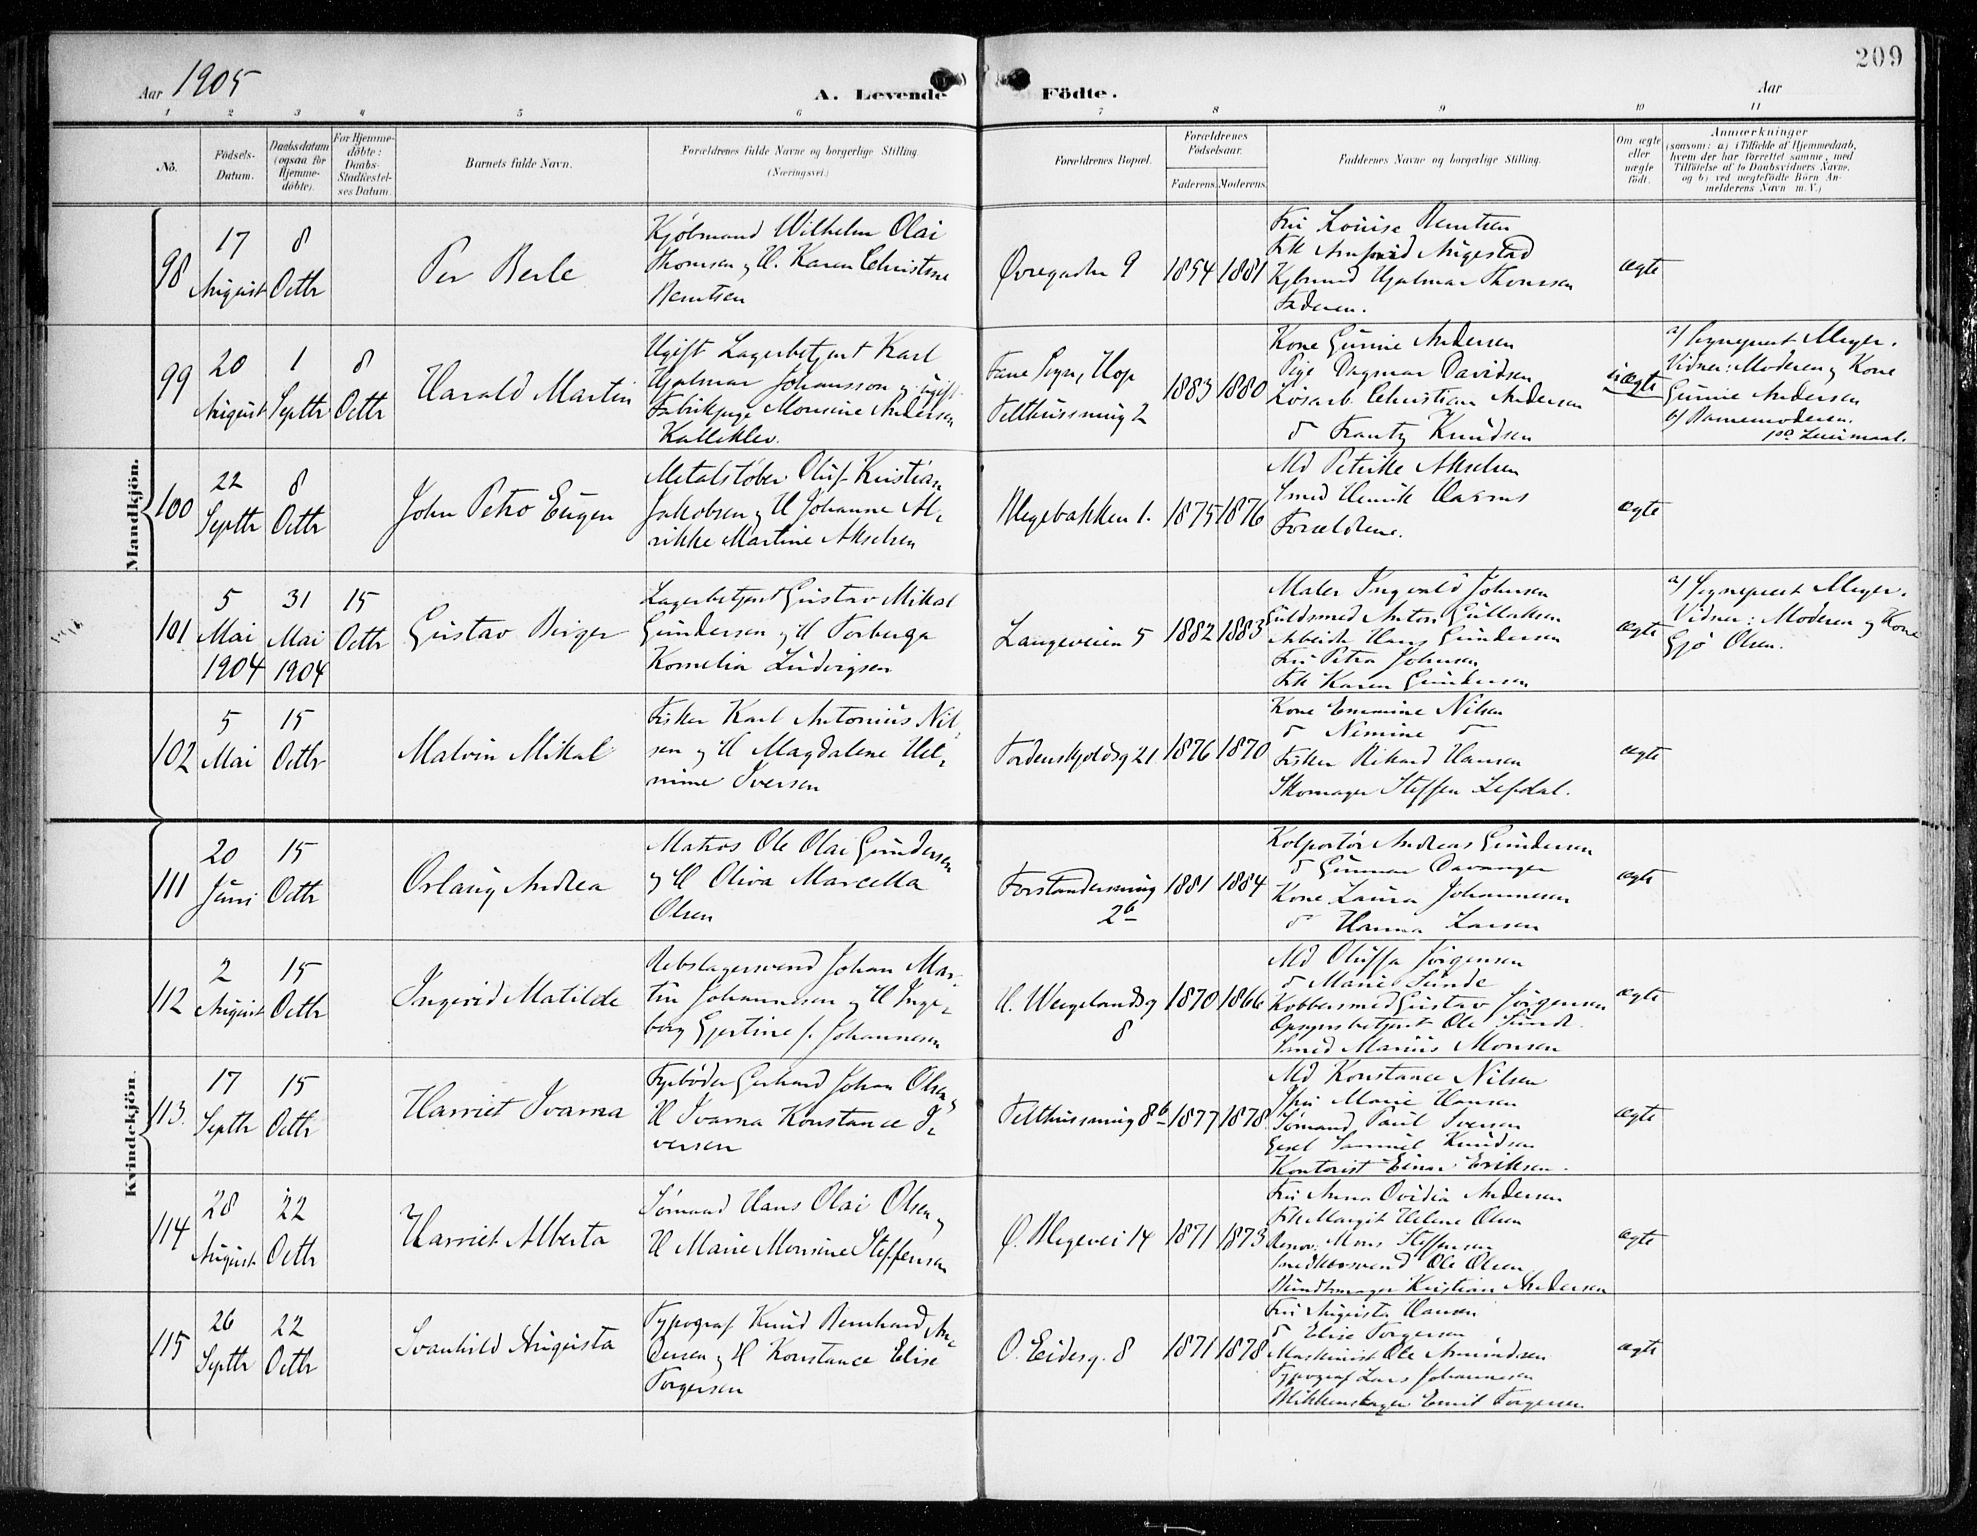 209
Aar 1905
A. Levende Födte.
Aar
1 2 3 4 5 6 7 8 9 10 11
No.
Födsels-
Datum.
Daabsdatum
(ogsaa for
Hjemme-
döbte).
For Hjemme-
döbte:
Daabs-
Stadfæstel-
ses Datum.
Barnets fulde Navn.
Forældrenes fulde Navne og borgerlige Stilling
(Næringsvei.)
Forældrenes Bopæl.
Forældrenes
Födselsaar.
Faderens. Moderens.
Faddernes Navne og borgerlige Stilling.
Om ægte
eller
uægte
födt.
Anmærkninger
(saasom: a) i Tilfælde af Hjemmedaab,
hvem der har forrettet samme, med
Tilföielse af to Daabsvidners Navne,
og b) ved uægtefödte Börn An-
melderens Navn m. V.)
Mandkjön.
98
17
August
8
Octbr
Per Berle
Kjøbmand Wilhelm Olai
Thomsen og H. Karen Christine
Berntsen
Øvregaden 9
1854
1881
Fru Louise Berntsen
Frk Arnfrid Angestad
Kjøbmand Hjalmar Thomsen
Faderen.
ægte
99
20
August
1
Septbr
8
Octbr
Harald Martin
Ugift Lagerbetjent Karl
Hjalmar Johansson og ugift
Fabrikpige Monsine Andersen
Kalleklev.
Fane Sogn, Hop
Telthussmug 2
1883
1880
Kone Gurine Andersen
Pige Dagmar Davidsen
Løsarb. Christian Andersen
do Frantz Knudsen
uægte
a/ Sognepræst Meyer.
Vidner: Moderen og Kone
Gurine Andersen
b/ Barnemoderen.
1ste Leiermaal.
100
22
Septbr
8
Octbr
John Petro Eugen
Metalstøber Oluf Kristian
Jakobsen og H Johanne Al-
rikke Martine Akselsen
Ølegebakken 1.
1875
1876
Md Petrike Akselsen
Smed Henrik
Forældrene.
ægte
101
5
Mai
1904
31
Mai
1904
15
Octbr
Gustav Birger
Lagerbetjent Gustav Mikal
Gundersen og H Torberga
Kornelia Ludvigsen
Langeveien 5
1882
1883
Maler Ingvald Johnsen
Guldsmed Anton Gullaksen
Arbeider Hans Gundersen
Fru Petra Johnsen
Frk Karen Gundersen
ægte
a/ Sognepræst Meyer.
Vidner: Moderen og Kone
Gjø Olsen.
102
5
Mai
15
Octbr
Malvin Mikal
Fisker Karl Antonius Nil-
sen og H Magdalene Hel-
mine Iversen
Tordenskjoldsg 21
1876
1870
Kone Emmine Nilsen
do Nimine do
Fisker Rikard Hansen
Skomager Steffen Lefdal.
ægte
Kvindekjön.
111
20
Juni
15
Octbr
Orlaug Andrea
Matros Ole Olai Gundersen
og H Oliva Marcella
Olsen
Forstandersmug
2b
1881
1884
Kolportør Andreas Gundersen
do Gunnar Davanger
Kone Laura Johannesen
do Hanna Larsen
ægte
112
2
August
15
Octbr
Ingerid Matilde
Rebslagersvend Johan Mar-
tin Johannesen og H Inge-
borg Gjertine f. Johannesen
H. Wergelandsg
8
1870
1866
Md Oluffa Jörgensen
do Marie Sunde
Kobbersmed Gustav Jörgensen
Opsynsbetjent Ole Sunde
Smed Marius Monsen
ægte
113.
17
Septbr
15
Octbr
Harriet Ivarna
Fyrbøder Gerhard Johan Olsen og
H Ivarna Konstance I-
versen
Telthussmug 8b
1877
1878
Md Konstance Nilsen
Marie Hansen
Sømand Paul Iversen
Samuel Knudsen
Kontorist Einar Eriksen.
ægte
114
28
August
22
Octbr
Harriet Alberta
Sømand Hans Olai Olsen og
H Marie Monsine Steffensen
Ø. Blegevei 14
1871
1873
Fru Anna Ovidia Andersen
Frk Margit Helene Olsen
Renov. Mons Steffensen
Snedkersvend Ole Olsen
Buntmager Kristian Andersen
ægte
115
26
Septbr
22
Octbr
Svanhild Augusta
Typograf Knud Bernhard An-
dersen og H Konstance Elise
Torgersen
O. Eidesg. 8
1871
1878
Fru Augusta Hansen
do Elise Torgersen
Maskinist Ole Amundsen
Typograf Lars Johannesen
Blikkenslager Emil Torgersen
ægte